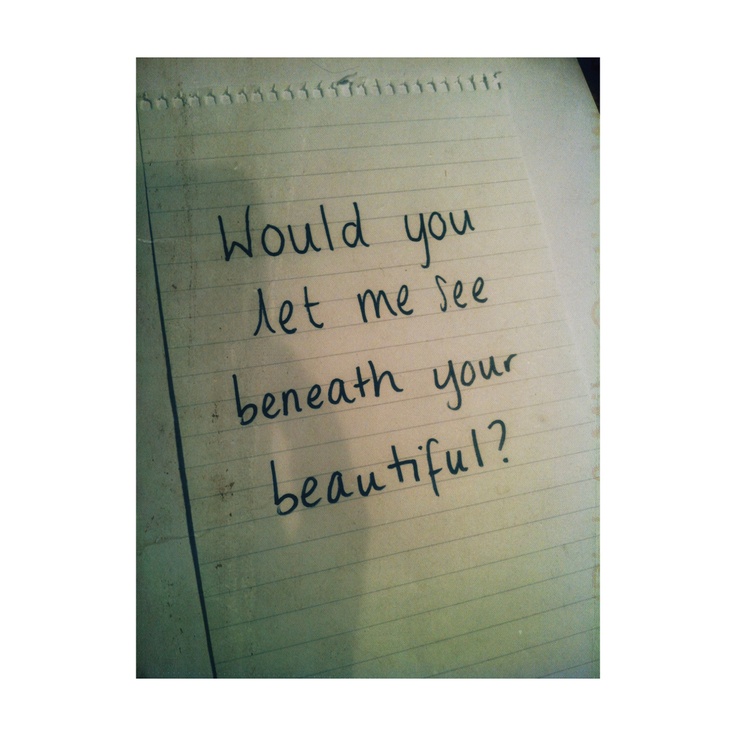 Would you
let me see
beneath your
beautiful?